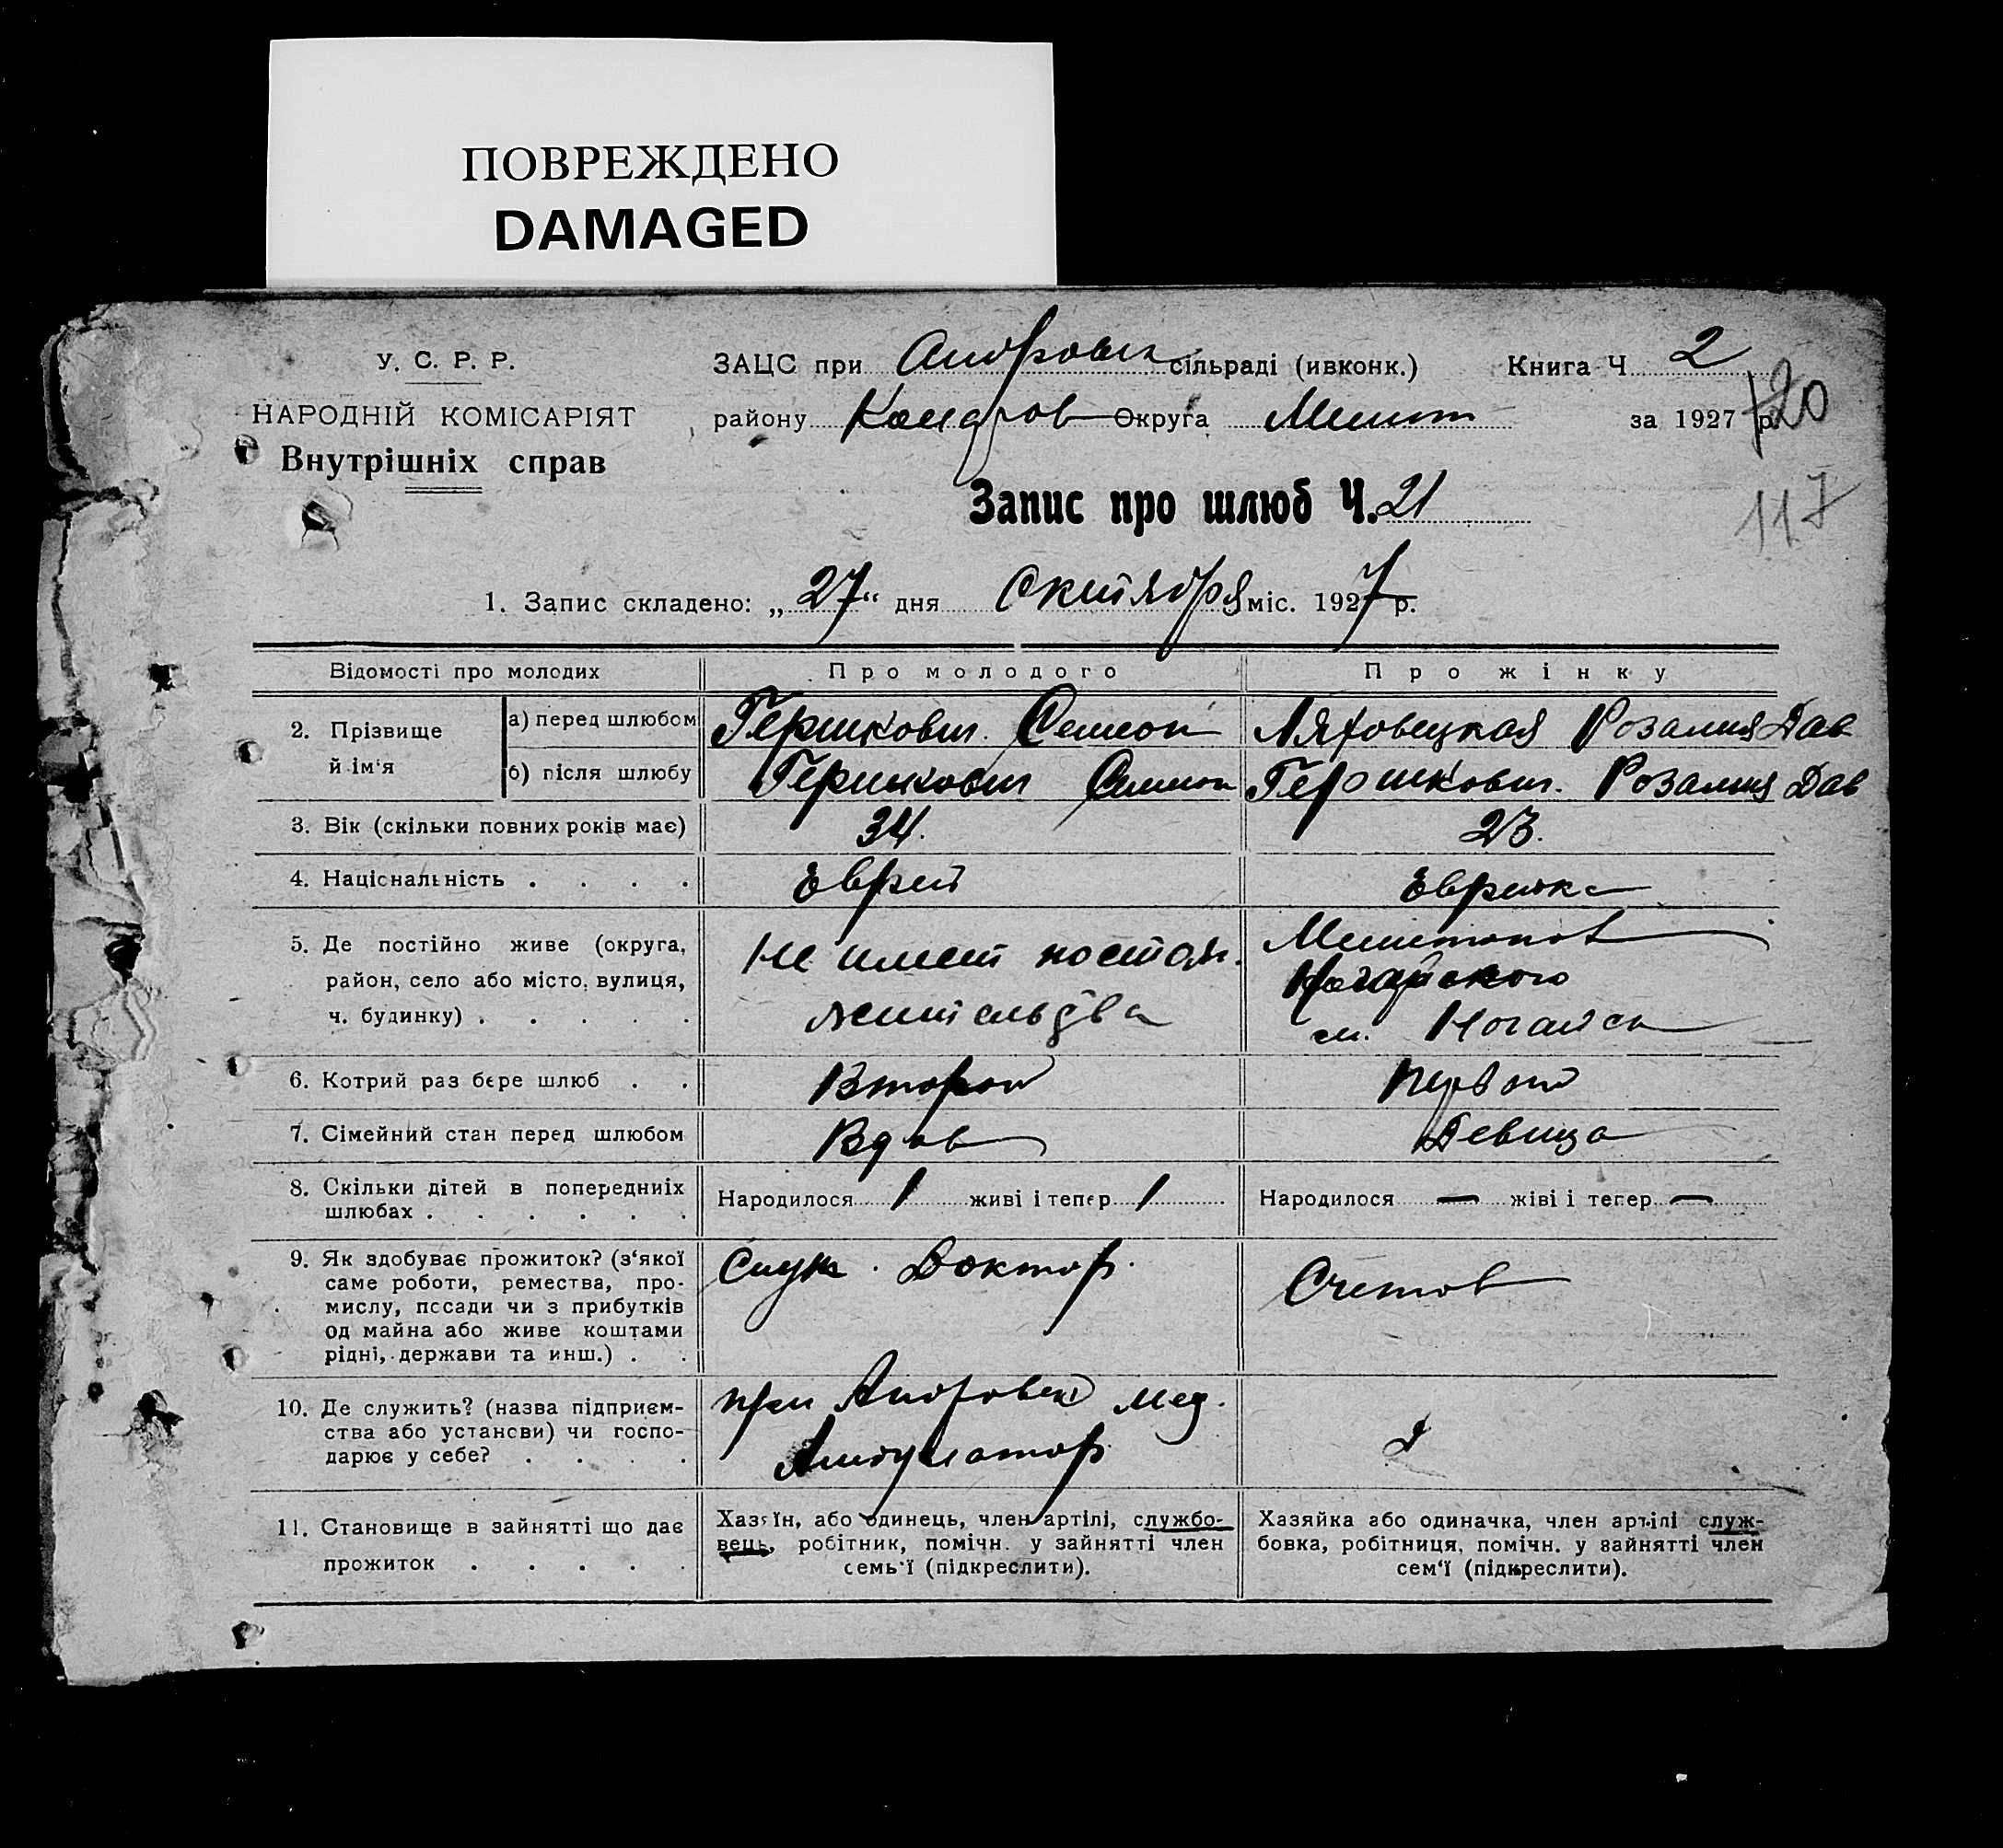 ПОВРЕЖДЕНО
DAMAGED
У. С. Р. Р.
НАРОДНІЙ КОМІСАРІЯТ
Внутрішніх справ
ЗАЦС при Андровск сільраді (ивконк.) Книга Ч 2
району Округа Мелит за 1927 р. 120
Запис про шлюб Ч. 21
117
1. Запис складено: „27“ дня Октября міс. 1927 р.
Відомості про молодих Про молодого Про жінку
2. Прізвище й ім'я
а) перед шлюбом Гершкович Семеон Ляховецкая Розалия Дав
б) після шлюбу Гершкович Семион Гершкович. Розалия Дав
3. Вік (скільки повних років має) 34. 23.
4. Національність . . . . Еврей Еврейка
5. Де постійно живе (округа,
район, село або місто, вулиця,
ч. будинку) . . . . .
Не имеет постоян.
жительства
Мелитопол
Ногайского
м. Ногайск
6. Котрий раз бере шлюб . . Второй Первый
7. Сімейний стан перед шлюбом Вдов Девица
8. Скільки дітей в попередниіх
шлюбах . . . . . .
Народилося 1 живі і тепер 1 Народилося — жіві і тепер —
9. Як здобуває прожиток? (з'якої
саме роботи, ремества, про-
мислу, посади чи з прибутків
од майна або живе коштами
рідні, держави та инш.) . .
Служ. Доктор. Счетов
10. Де служить? (назва підприєм-
ства або установи) чи госпо-
дарює у себе? . . . .
при Андровск мед.
Амбулатор.
11. Становище в зайнятті що дає
прожиток . . . . .
Хазяїн, або одинець, член артілі, службо-
вець, робітник, помічн. у зайнятті член
семь'ї (підкреслити).
Хазяйка або одиначка, член артілі служ-
бовка, робітниця, помічн. у зайнятті член
сем'ї (підкреслити).